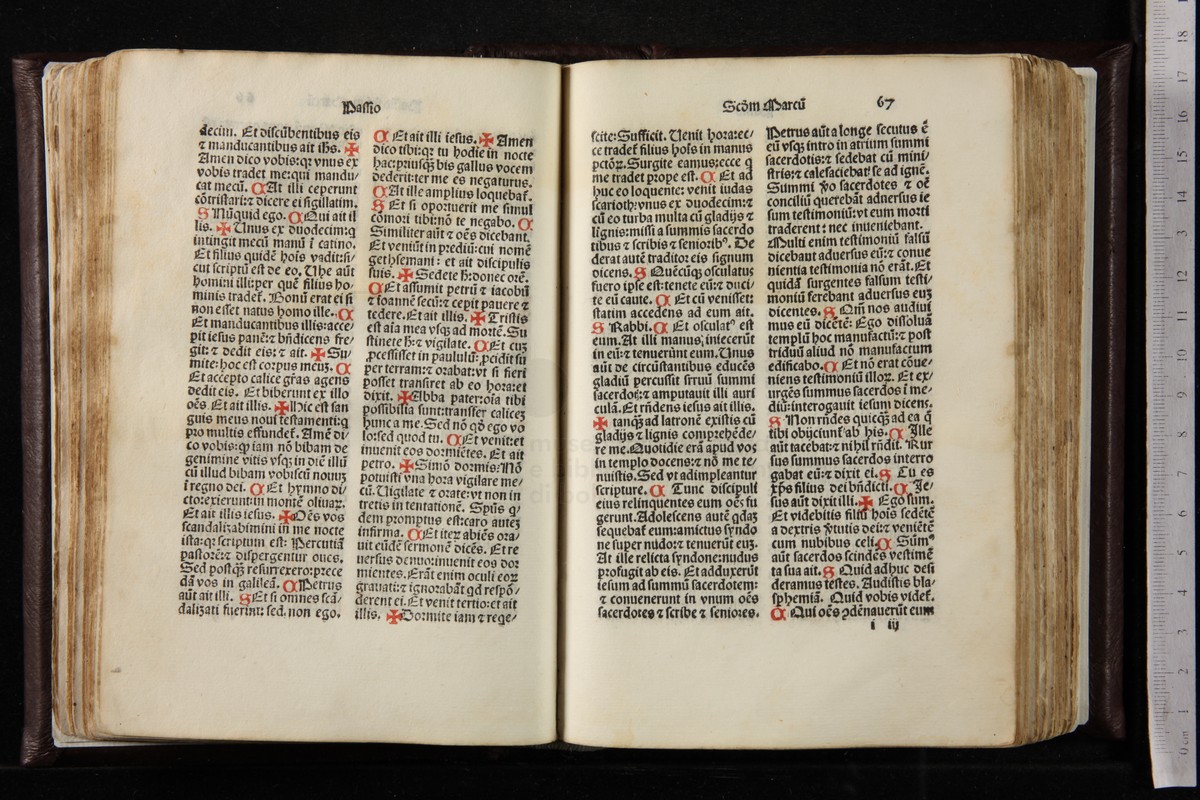 Passio
decim. Et discūbentibus eis
⁊ manducantibus ait ihs. ✠
Amen dico vobis:qꝛ vnus ex
vobis tradet me:qui mandu/
cat mecū. C At illi ceperunt
cōtristari:⁊ dicere ei sigillatim.
S Nūquid ego. C Qui ait il
lis. ✠ Unus ex duodecim:q
intingit mecū manū ī catino.
Et filius quidē hoīs vadit:si/
cut scriptū est de eo. Uhe aūt
homini illi:per quē filius ho/
minis tradet᷑. Bonū erat ei si
non esset natus homo ille. C
Et manducantibus illis:acce/
pit iesus panē:⁊ bn̄dicens fre/
git: ⁊ dedit eis: ⁊ ait. ✠ Su/
mite: hoc est corpus meuꝫ. C
Et accepto calice grās agens
dedit eis. Et biberunt ex illo
oēs. Et ait illis. ✠ Hic est san
guis meus noui testamenti:q
pro multis effundet᷑. Amē di/
co vobis:ꝙ iam nō bibam de
genimine vitis vsqꝫ in diē illū
cū illud bibam vobiscū nouuꝫ
ī regno dei. C Et hymno di/
cto:exierunt in montē oliuaꝝ.
Et ait illis iesus. ✠ Oēs vos
scandalizabimini in me nocte
ista:qꝛ scriptum est: Percutiā
pastorē:⁊ dispergentur oues.
Sed postqꝫ resurrexero:prece
dā vos in galileā. C Petrus
aūt ait illi. S Et si omnes scā/
dalizati fuerint: sed non ego.
C Et ait illi iesus. ✠ Amen
dico tibi:qꝛ tu hodie in nocte
hac:priusqꝫ bis gallus vocem
dederit:ter me es negaturus.
C At ille amplius loquebat᷑.
S Et si oportuerit me simul
cōmori tibi:nō te negabo. C
Similiter aūt ⁊ oēs dicebant.
Et veniūt in prediū:cui nomē
gethsemani: et ait discipulis
suis. ✠ Sedete h̄:donec orē.
C Et assumit petrū ⁊ iacobū
⁊ ioannē secū:⁊ cepit pauere ⁊
tedere. Et ait illis. ✠ Tristis
est aīa mea vsqꝫ ad mortē. Su
stinete h̄:⁊ vigilate. C Et cuꝫ
ꝓcessisset in paululū:ꝓcidit su
per terram:⁊ orabat:vt si fieri
posset transiret ab eo hora:et
dixit. ✠ Abba pater:oīa tibi
possibilia sunt:transfer caliceꝫ
hunc a me. Sed nō qḋ ego vo
lo:sed quod tu. C Et venit:et
inuenit eos dormiētes. Et ait
petro. ✠ Simō dormis:Nō
potuisti vna hora vigilare me/
cū. Uigilate ⁊ orate:vt non in
tretis in tentationē. Spūs q/
dem promptus est:caro auteꝫ
infirma. C Et iteꝝ abiēs ora/
uit eūdē sermonē dicēs. Et re
uersus denuo:inuenit eos dor
mientes. Erāt enim oculi eoꝝ
grauati:⁊ ignorabāt qd respō/
derent ei. Et venit tertio:et ait
illis. ✠ Dormite iam ⁊ reqe/
Scḋm Marcū 67
scite: Sufficit. Uenit hora:ec/
ce tradet᷑ filius hoīs in manus
pctōꝝ. Surgite eamus:ecce q
me tradet prope est. C Et ad
huc eo loquente: venit iudas
scarioth:vnus ex duodecim:⁊
cū eo turba multa cū gladijs ⁊
lignis:missi a summis sacerdo
tibus ⁊ scribis ⁊ seniorib᷒. De
derat autē traditor eis signum
dicens. S Quēcūqꝫ osculatus
fuero ipse est:tenete eū:⁊ duci/
te eū caute. C Et cū venisset:
statim accedens ad eum ait.
S Rabbi. C Et osculat᷒ est
eum. At illi manus iniecerūt
in eū:⁊ tenuerūnt eum. Unus
aūt de circūstantibus educēs
gladiū percussit seruū summi
sacerdot:⁊ amputauit illi auri
culā. Et rn̄dens iesus ait illis.
✠ tanqꝫ ad latronē existis cū
gladijs ⁊ lignis comprehēde/
re me. Quotidie erā apud vos
in templo docens:⁊ nō me te/
nuistis. Sed vt adimpleantur
scripture. C Tunc discipuli
eius relinquentes eum oēs fu
gerunt. Adolescens autē qdaꝫ
sequebat᷑ eum:amictus syndo
ne super nudo:⁊ tenuerūt euꝫ.
At ille relicta syndone:nudus
profugit ab eis. Et adduxerūt
iesum ad summū sacerdotem:
⁊ conuenerunt in vnum oēs
sacerdotes ⁊ scribe ⁊ seniores.
Petrus aūt a longe secutus ē
eū vsqꝫ intro in atrium summi
sacerdotis:⁊ sedebat cū mini/
stris:⁊ calefaciebat᷑ se ad ignē.
Summi ꝟo sacerdotes ⁊ oē
conciliū querebāt aduersus ie
sum testimoniū:vt eum morti
traderent: nec inueniebant.
Multi enim testimoniū falsū
dicebant aduersus eū:⁊ conue
nientia testimonia nō erāt. Et
quidā surgentes falsum testi/
moniū ferebant aduersus euꝫ
dicentes. S Qm̄ nos audiui
mus eū dicētē: Ego dissoluā
templū hoc manufactū:⁊ post
triduū aliud nō manufactum
edificabo. C Et nō erat cōue/
niens testimoniū illoꝝ. Et ex/
urgēs summus sacerdos ī me/
diū:interogauit iesum dicens.
S Non rn̄des quicqꝫ ad ea q̄
tibi obijciunt᷑ ab his. C Ille
aūt tacebat:⁊ nihil rn̄dit. Rur
sus summus sacerdos interro
gabat eū:⁊ dixit ei. S Tu es
xp̄s filius dei bn̄dicti. C Je/
sus aūt dixit illi. ✠ Ego sum.
Et videbitis filiū hoīs sedētē
a dextris ꝟtutis dei:⁊ veniētē
cum nubibus celi. C Sūm᷒
aūt sacerdos scindēs vestimē
ta sua ait. S Quid adhuc desi
deramus testes. Audistis bla/
sphemiā. Quid vobis videt᷑.
C Qui oēs ꝯdēnauerūt eum
i iij